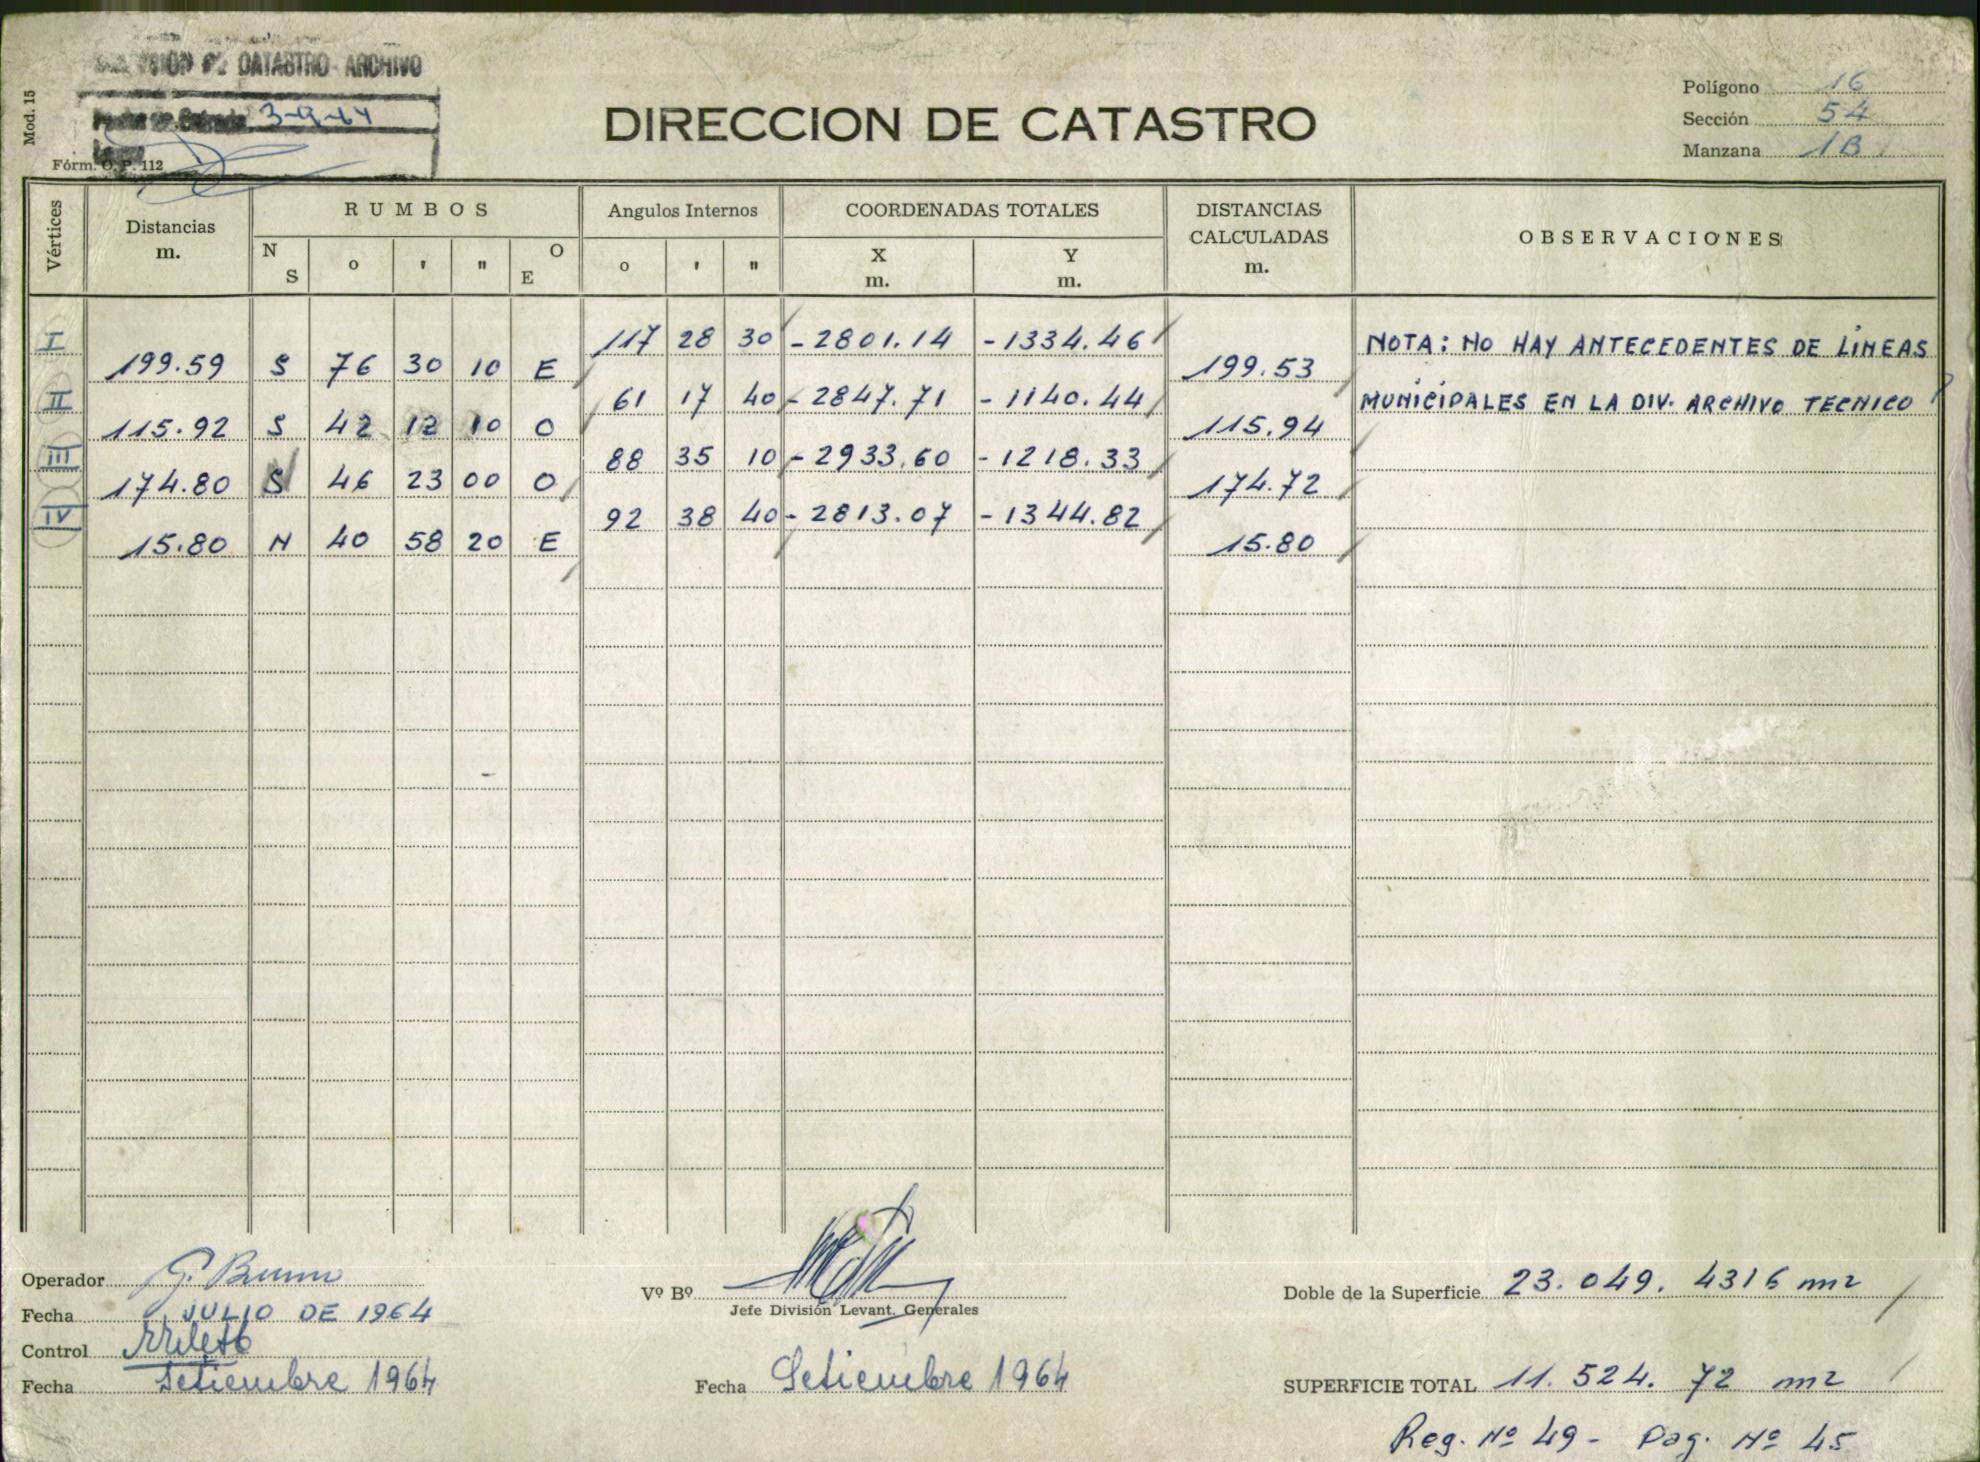 DE CATASTRO - ARCHIVO
Mod. 15
Fecha de Entrada 3-9-64
Fórm. O. P. 112
DIRECCION DE CATASTRO
Polígono 16
Sección 54
Manzana 1B
Vértices Distancias m. RUMBOS Angulos Internos COORDENADAS TOTALES DISTANCIAS CALCULADAS m. OBSERVACIONES
N S o ' " O E o ' " X m. Y m.
I 117 28 30 -2801.14 -1334.46 NOTA: NO HAY ANTECEDENTES DE LINEAS
199.59 S 76 30 10 E 199.53
II 61 17 40 -2847.71 -1140.44 MUNICIPALES EN LA DIV. ARCHIVO TECNICO
115.92 S 42 12 10 O 115.94
III 88 35 10 -2933.60 -1218.33
174.80 S 46 23 00 O 174.72
IV 92 38 40 -2813.07 -1344.82
15.80 N 40 58 20 E 15.80
Operador G. Bruno
Fecha JULIO DE 1964
Control
Fecha Setiembre 1964
Vº Bº
Jefe División Levant. Generales
Fecha Setiembre 1964
Doble de la Superficie 23.049. 4316 m2
SUPERFICIE TOTAL 11.524. 72 m2
Reg. Nº 49 - Pag. Nº 45